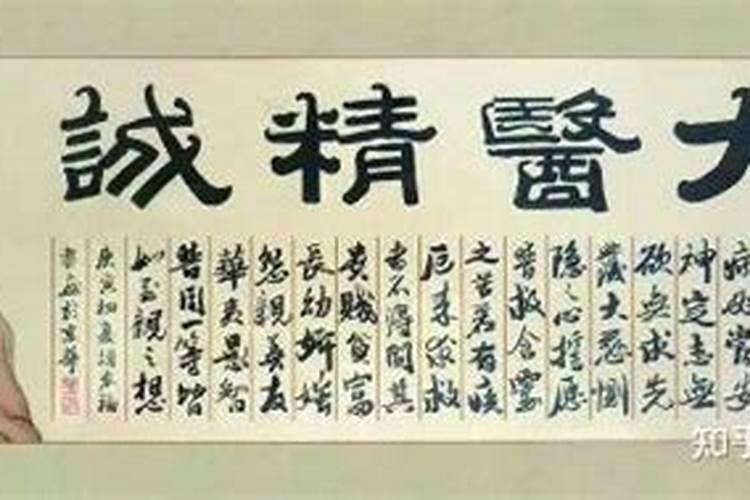 大醫精誠
病必當安
神定志無
欲無求先
發大慈惻
隱之心誓愿
普救含靈
之苦若有疾
厄來求救
者不得問其
貴賤貧富
長幼妍媸
怨親善友
華夷愚智
普同一等皆
如至親之想
庚寅初夏
於京華
知乎